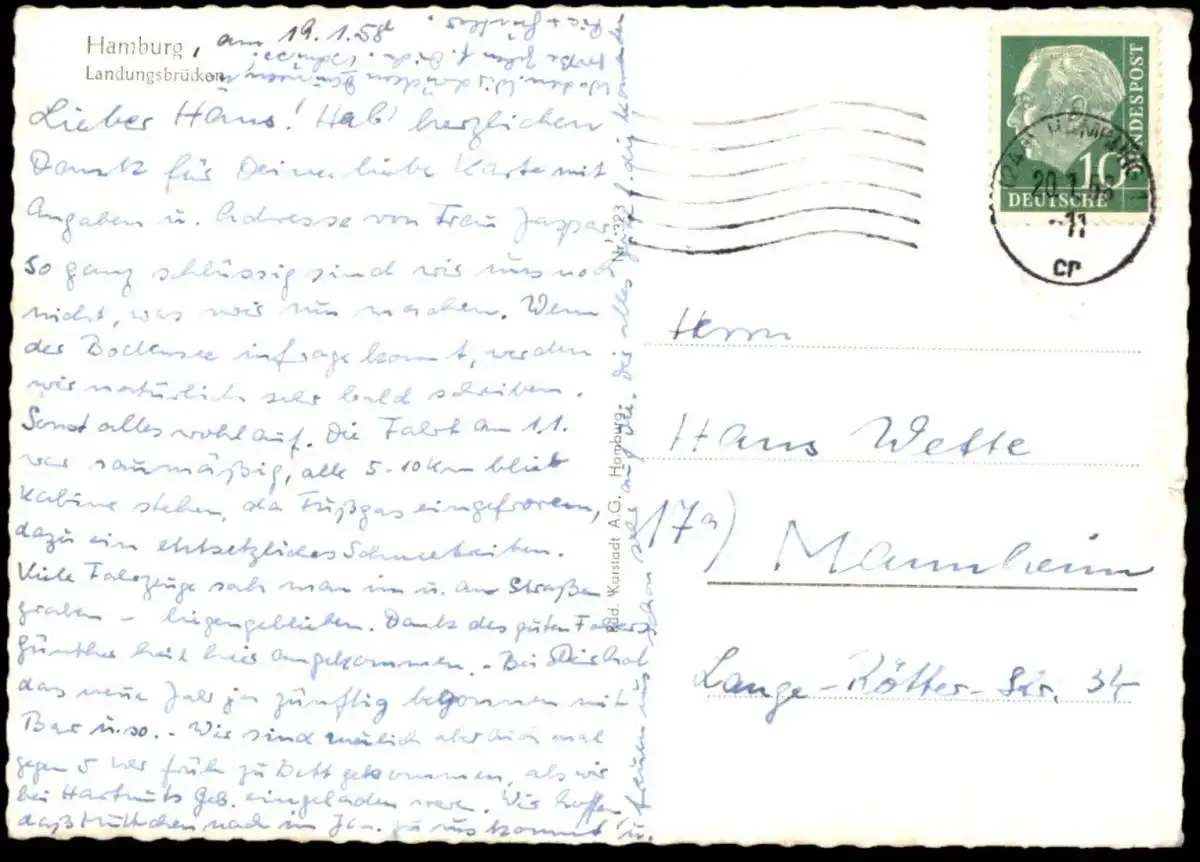 Hamburg, am 19.1.58
Landungsbrücken
Lieber Hans! Hab' herzlichen
Dank für Deine liebe Karte mit
Angaben u. Adresse von Frau Jaspar.
so ganz schlüssig sind wir uns noch
nicht, was wir tun machen. Wenn
der Bodensee infrage kommt, werden
wir natürlich sehr bald schreiben.
Sonst alles wohlauf. Die Fahrt am 1.1.
war saumäßig, alle 5-10 km blieb
Kabine stehen, da Fußgas eingefroren,
dazu ein entsetzliches Schneetreiben.
Viele Fahrzeuge sah man im u. am Straßen
graben - liegengeblieben. Dank des guten Fahrers
Günther heil hier angekommen. - Bei hat
das neue Jahr ja zünftig begonnen mit
Bar u. so. - Wir sind neulich aber auch mal
gegen 5 Uhr früh zu Bett gekommen, als wir
bei Hartmuts Geb. eingeladen waren. Wir hoffen,
daß Muttchen noch im Jan. zu uns kommt u.
freuen uns schon sehr auf sie. Dir alles Gute f. die
Wochen. Wir drücken Daumen u.
f. Dich.
Nr. 323
Rud. Karstadt A.G. Hamburg
DEUTSCHE
BUNDESPOST
10
HAMBURG
20.1.58
-11
cr
Herrn
Hans Wette
17a) Mannheim
Lange-Rötter-Str. 34